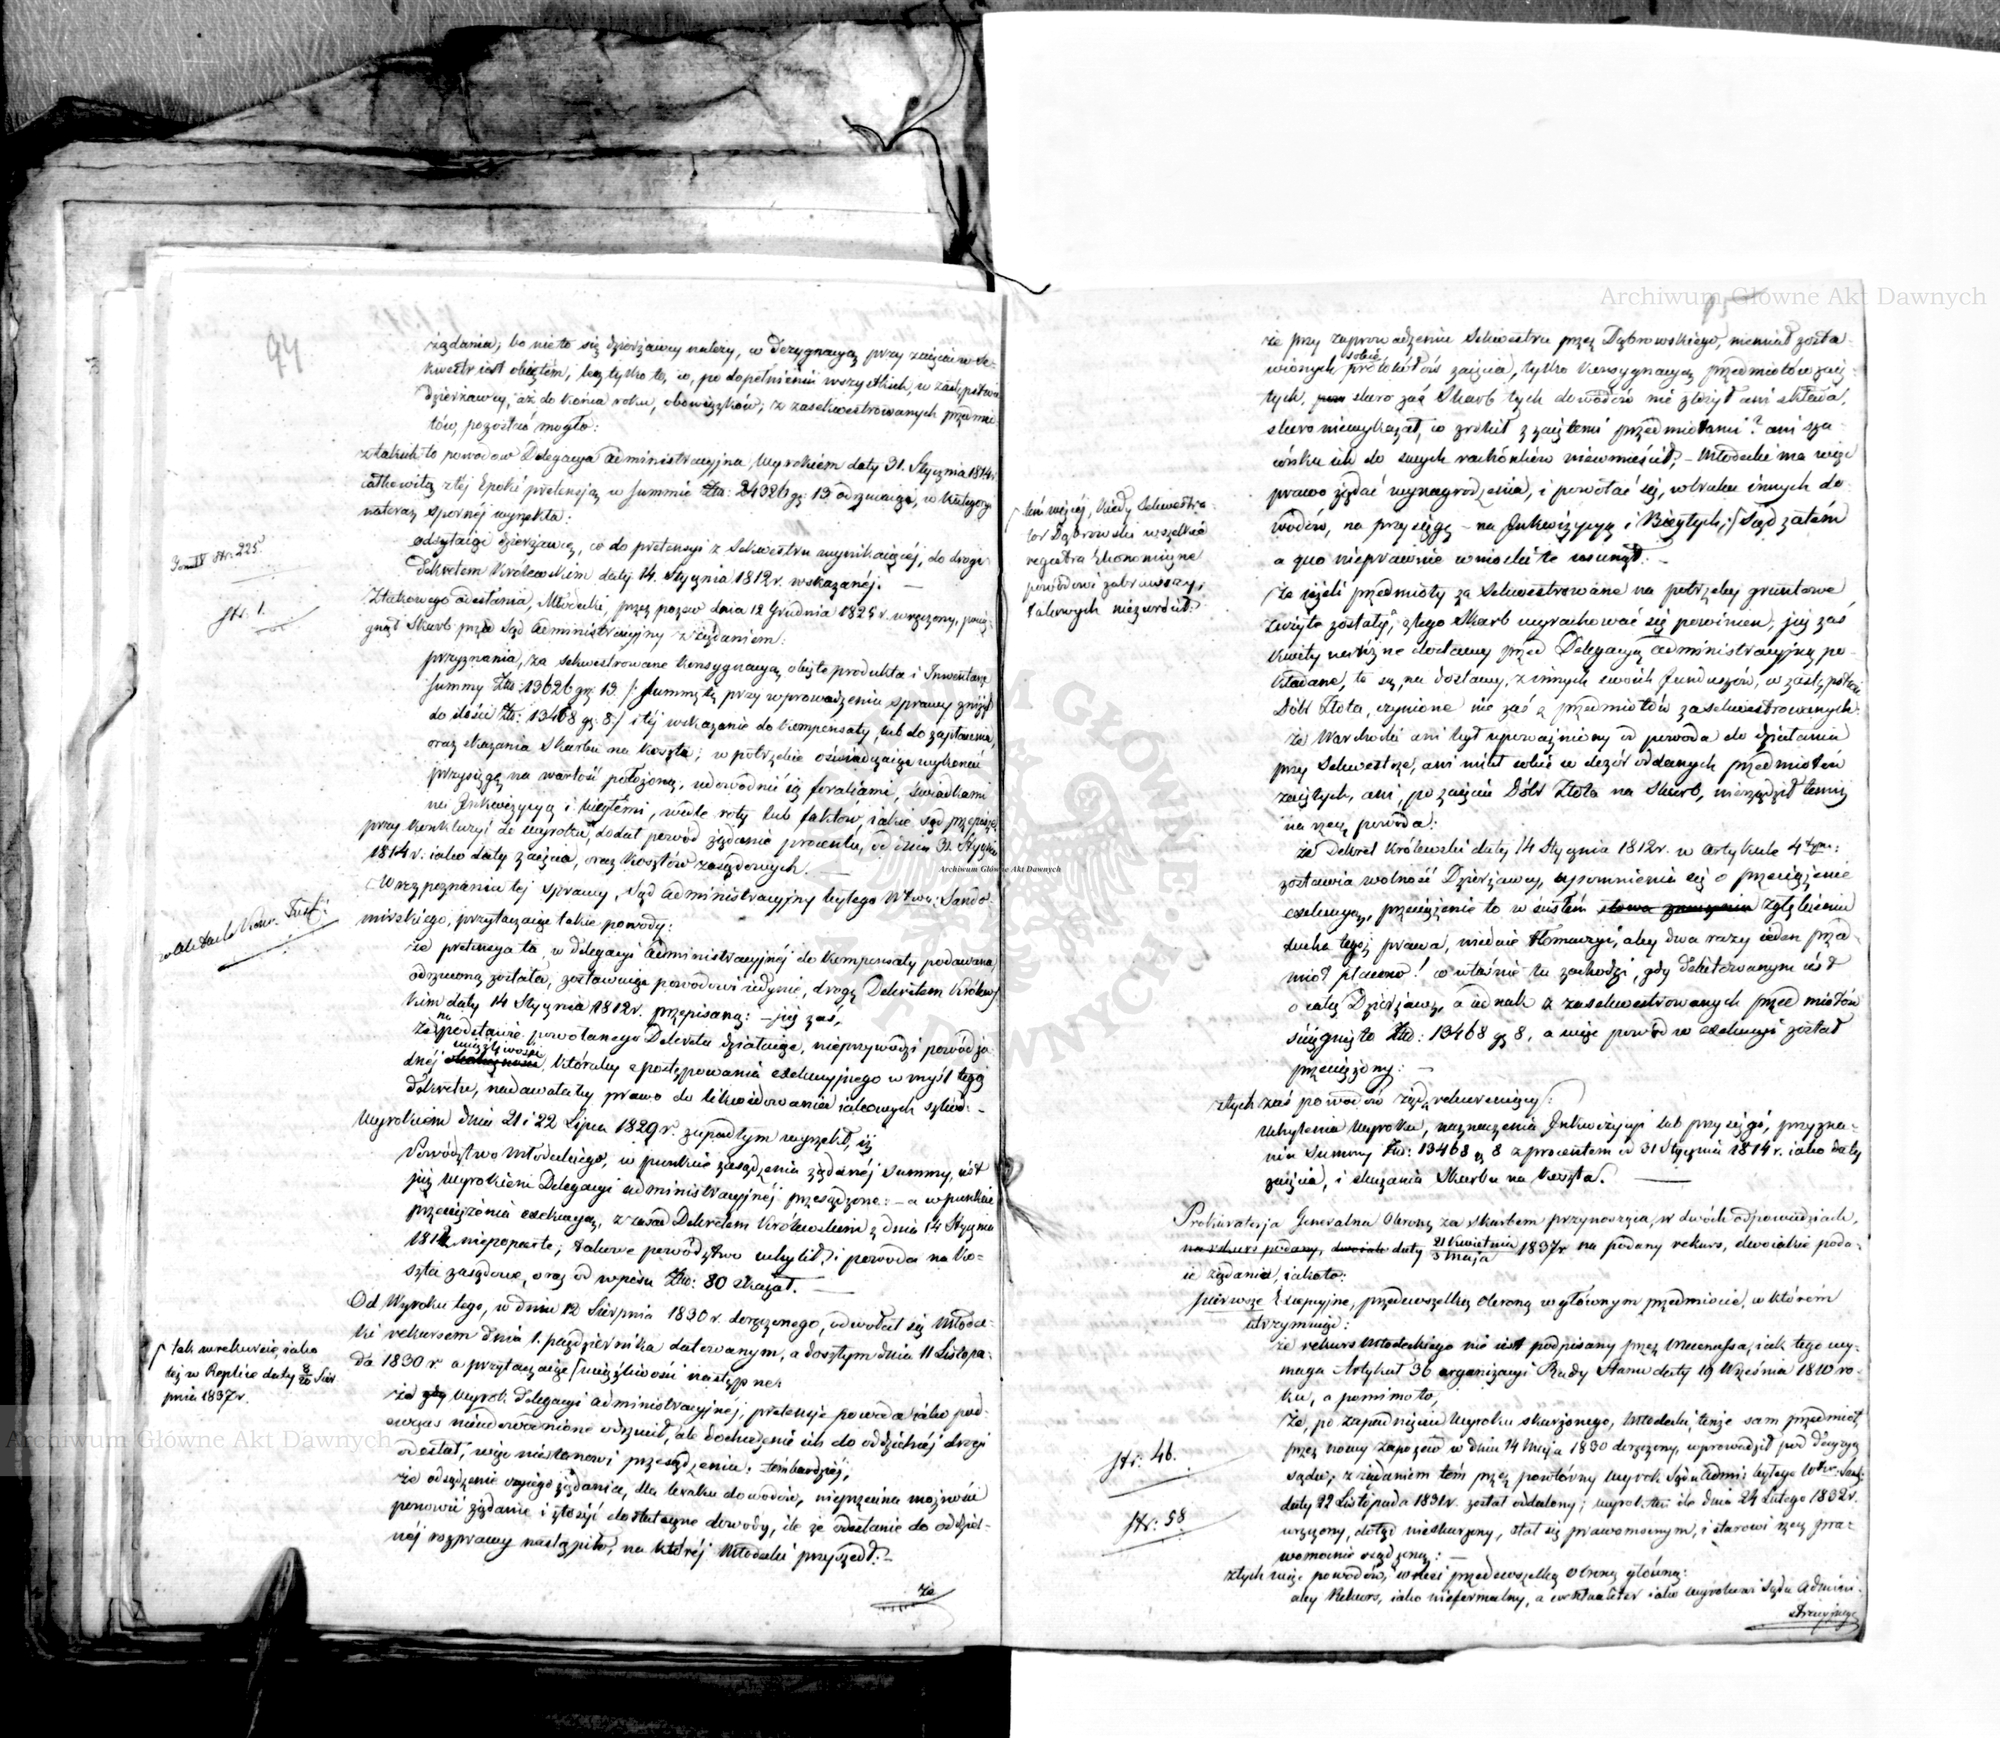 94
żądania; bo nie to się dzierżawcy należy, w dezygnacyą przy zajęciu w Se-
kwestr iest obiętem, lecz tylko to, co, po dopełnieniu wszystkich, w zastępstwie
dzierżawcy, aż do końca roku, obowiązków, z zasekwestrowanych przedmio-
tów, pozostać mogło:
z takich to powodów Delegacya administracyjna, Wyrokiem daty 31. Stycznia 1814 r.
całkowitą z téj Epoki pretensyą w summie Złp: 24326 gr: 13 odrzucaiąc, w kategoryi
nateraz spornéj wyrzekła:
odsyłaiąc dzierżawcę, co do pretensyi z Sekwestru wynikaiącéj, do drogi
Dekretem Królewskim daty 14. Stycznia 1812 r. wskazanéj. —
Tom IV Str: 225
Str: 1.
Z takowego odesłania, Młodecki, przez pozew dnia 12 Grudnia 1825 r. wręczony, pocią-
gnął Skarb przed Sąd Administracyjny z żądaniem:
przyznania, za sekwestrowane konsygnacyą obięte produkta i Inwentarz
summy Złp: 13626 gr: 13 /: summę tę przy wprowadzeniu sprawy zniżył
do ilości Złp: 13468 gr: 8 :/ i téj wskazanie do kompensaty, lub do zapłacenia,
oraz skazania Skarbu na koszta; w potrzebie oświadczaiąc wykonać
przysięgę na wartość położoną, udowodnić ią foraliami, świadkami
na Inkwizycyą i biegłemi, wedle roty lub faktów, iakie Sąd przepisze
przy konkluzyi do wyroku, dodał powód żądanie procentu, od dnia 31. Stycznia
1814 r. iako daty zajęcia, oraz kosztów zasądowych. —
w Aktach Kom. Trst:
W rozpoznaniu tej sprawy, Sąd administracyjny byłego Wtwa: Sando-
mirskiego, przytaczaiąc takie powody:
że pretensya ta, w delegacyi Administracyjnéj do kompensaty podawana,
odrzuconą została, zostawuiąc powodowi iedynie, drogę Dekretem Królews-
kim daty 14 Stycznia 1812 r. przepisaną: — już zaś,
że na podstawie powołanego Dekretu działaiąc, nieprzywodzi powód ża-
dnéj uciążliwości, któraby z postępowania exekucyjnego w myśl tegoż
dekretu, nadawałaby prawo do likwidowania iakowych szkód: —
Wyrokiem dnia 21 i 22 Lipca 1829 r. zapadłym wyrzekł, iż
Powództwo Młodeckiego, w punkcie zasądzenia żądanéj summy, iest
już wyrokiem Delegacyi administracyjnéj przesądzone: — a w punkcie
przeciążenia exekucyą, z zasad Dekretem Królewskim z dnia 14 Stycznia
1812 niepoparte; takowe powództwo uchylił, i powoda na ko-
szta zasądowe, oraz od wpisu Złp: 80 skazał. —
Od Wyroku tego, w dniu 12 Sierpnia 1830 r. doręczonego, odwołał się Młodec-
ki rekursem dnia 1. października datowanym, a doszłym dnia 11 Listopa-
da 1830 r. a przytaczaiąc / uciążliwości następne:
/ tak w rekursie, iako
też w Replice daty 8/20 Sier-
pnia 1837 r.
że wyrok Delegacyi administracyjnéj, pretensyje powoda iako pod-
ówczas nieudowodnione odrzucił, ale dochodzenie ich do oddzielnéj drogi
odesłał, więc niestanowi przesądzenia: tembardziéj,
że odsądzenie czyiegoś żądania, dla braku dowodów, nieprzecina możności
ponowić żądanie i złożyć dostateczne dowody, ile że odesłanie do oddziel-
néj rozprawy nastąpiło, na któréj Młodecki przyszedł: —
że
95
że przy zaprowadzeniu Sekwestru przez Dąbrowskiego, niemiał zosta-
wionych sobie protokółów zaięcia, tylko konsygnacyą przedmiotów zaię-
tych. skoro zaś Skarb tych dowodów nie złożył ani składa,
skoro niewykazał, co zrobił z zaiętemi przedmiotami? ani sza-
cunku ich do swych rachunków niewmieścił; — Młodecki ma więc
prawo żądać wynagrodzenia, i powołać się, w braku innych do-
wodów, na przysięgę — na Inkwizycyą i Biegłych; / Sąd zatém
a quo nieprawnie wnioski te usunął. —
/ tém więcéj, kiedy Sekwestra-
tor Dąbrowski wszelkie
regestra Ekonomiczne
powodowi zabrawszy,
takowych niezwrócił:
że ieżeli przedmioty za Sekwestrowane na potrzeby gruntowe
zużyte zostały, z tego Skarb wyrachować się powinien, już zaś
kwity na różne dostawy przed Delegacyą administracyjną po-
kładane, te są, na dostawy, z innych swoich funduszów, w zastępstwie
Dóbr Złota, czynione nie zaś z przedmiotów zasekwestrowanych.
że Warchocki ani był upoważniony od powoda do działania
przy Sekwestrze, ani miał sobie w dozór oddanych przedmiotów
zaiętych, ani, po zaięciu Dóbr Złota na Skarb, nierządził temiż
na rzecz powoda:
że Dekret Królewski daty 14 Stycznia 1812 r. w Artykule 4tym:
zostawia wolność Dzierżawcy, upomnienia się o przeciążenie
exekucyą, przeciążenie to w ścisłém zgłębieniu
ducha tegoż prawa, niedaie tłomaczyć, aby dwa razy ieden przed-
miot płacono! co właśnie tu zachodzi, gdy Dekretowanym iest
o całą Dzierżawę, a iednak z zasekwestrowanych przedmiotów
ściągnięto Złp: 13468 gr 8, a więc powód w exekucyi został
przeciążony: —
z tych zaś powodów żąda rekuruiący:
Uchylenia Wyroku, naznaczenia Inkwizycyi lub przysięgi, przyzna-
nia Summy Złp: 13468 gr 8 z procentem od 31 Stycznia 1814 r. iako daty
zaięcia, i skazania Skarbu na koszta. —
Prokuratorja Generalna Obronę za Skarbem przynosząca, w dwóch odpowiedziach,
daty 21 Kwietnia/3 Maja 1837 r. na podany rekurs, dwoiakie poda-
ie żądania, iakoto:
pierwsze Excepcyjne, przedewszelką Obroną w głównym przedmiocie, w którém
utrzymuie:
że rekurs Młodeckiego nie iest podpisany przez Mecenassa, iak tego wy-
maga Artykuł 36 organizacyi Rady Stanu daty 19 Września 1810 ro-
ku, a pomimo to,
że, po zapadnięciu Wyroku skarżonego, Młodecki, tenże sam przedmiot,
przez nowy zapozew w dniu 14 Maja 1830 doręczony, wprowadził pod decyzyą
Str: 46.
sądu; z żądaniem tém przez powtórny Wyrok Sądu Admi: byłego Wtwa: Sand:
daty 22 Listopada 1831 r. został oddalony; wyrok ten ile dnia 24 Lutego 1832 r.
Str: 58
wręczony, dotąd nieskarżony, stał się prawomocnym, i stanowi rzecz pra-
womocnie osądzoną: —
z tych więc powodów, wnosi przedewszelką obroną główną:
aby Rekurs, iako nieformalny, a ewentualiter iako wyrokowi Sądu Admini-
stracyjnego